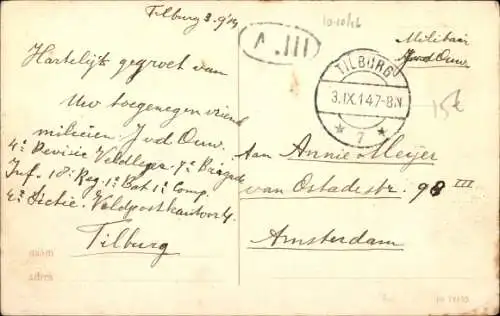 Tilburg 3.9'14
Hartelijk gegroet van
Uw toegenegen vriend
milicien. J.v.d. Ouw.
4e Devisie Veldleger 7e Brigade
Inf. 18e Reg. 1e Bat 1e Comp.
4e Sectie. Veldpostkantoor 4.
Tilburg
naam
adres
10-10/16
V.III.
TILBURG
3.IX.14.7-8N
* 7 *
Militair
J.v.d. Ouw.
15k
Aan Annie Meyer
van Ostadestr. 98 III
Amsterdam